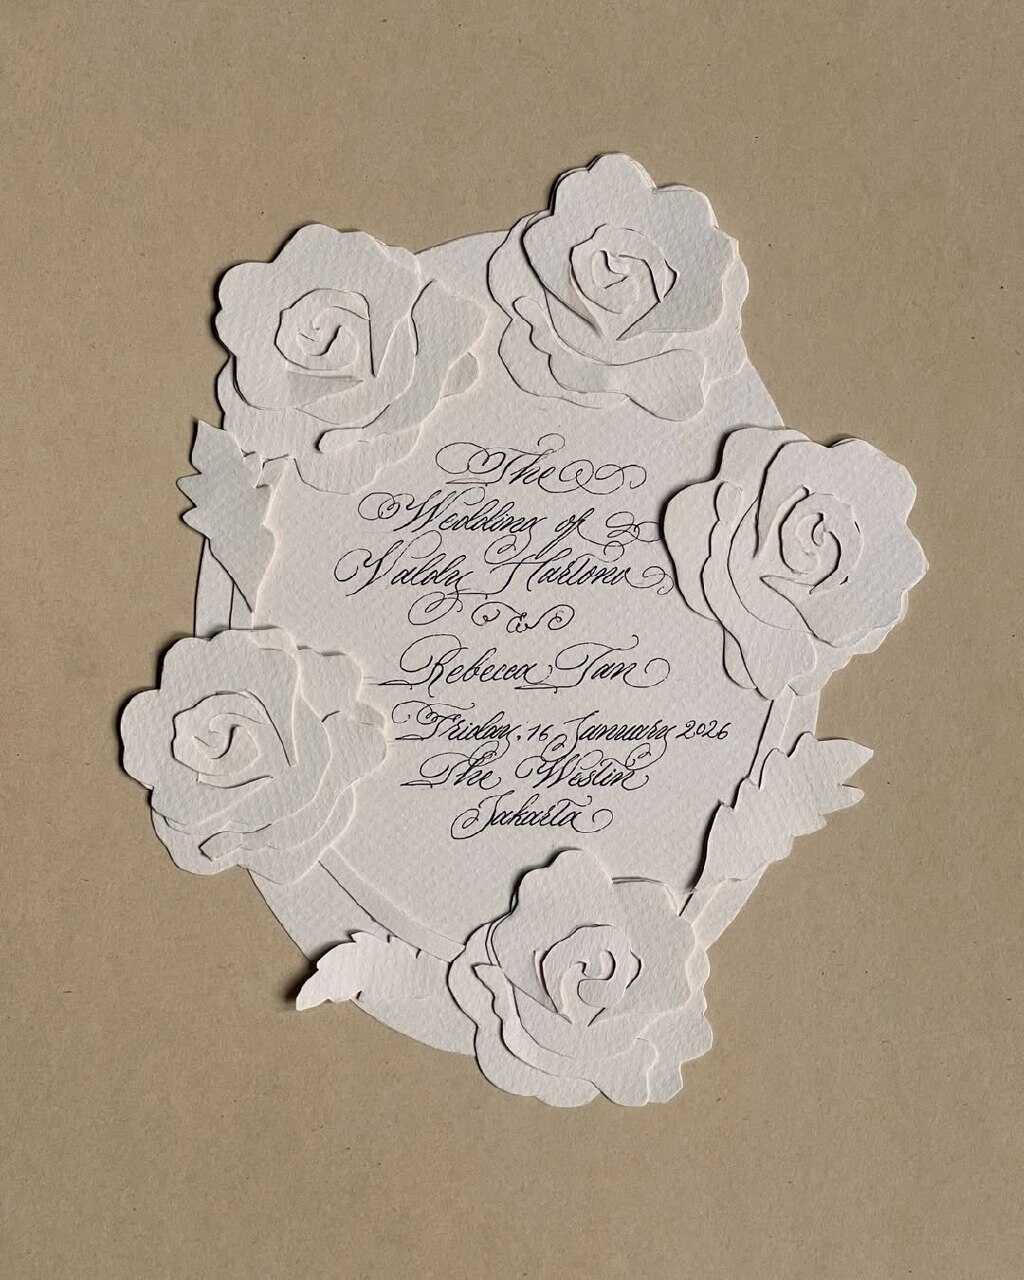 The
Wedding of
Valdy Hartono
&
Rebecca Tan
Friday, 16 January 2026
The Westin
Jakarta